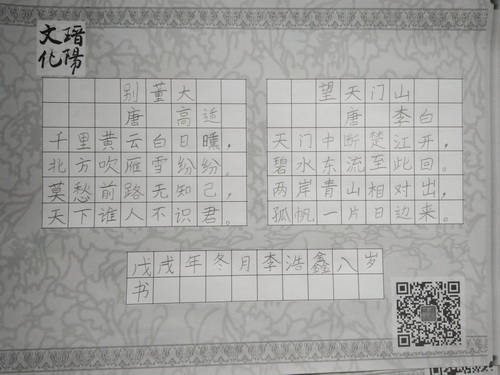 文瑨
化陽
别董大
唐 高适
千里黄云白日曛，
北方吹雁雪纷纷。
莫愁前路无知己，
天下谁人不识君。
望天门山
唐 李白
天门中断楚江开，
碧水东流至此回。
两岸青山相对出，
孤帆一片日边来。
戊戌年冬月李浩鑫八岁
书